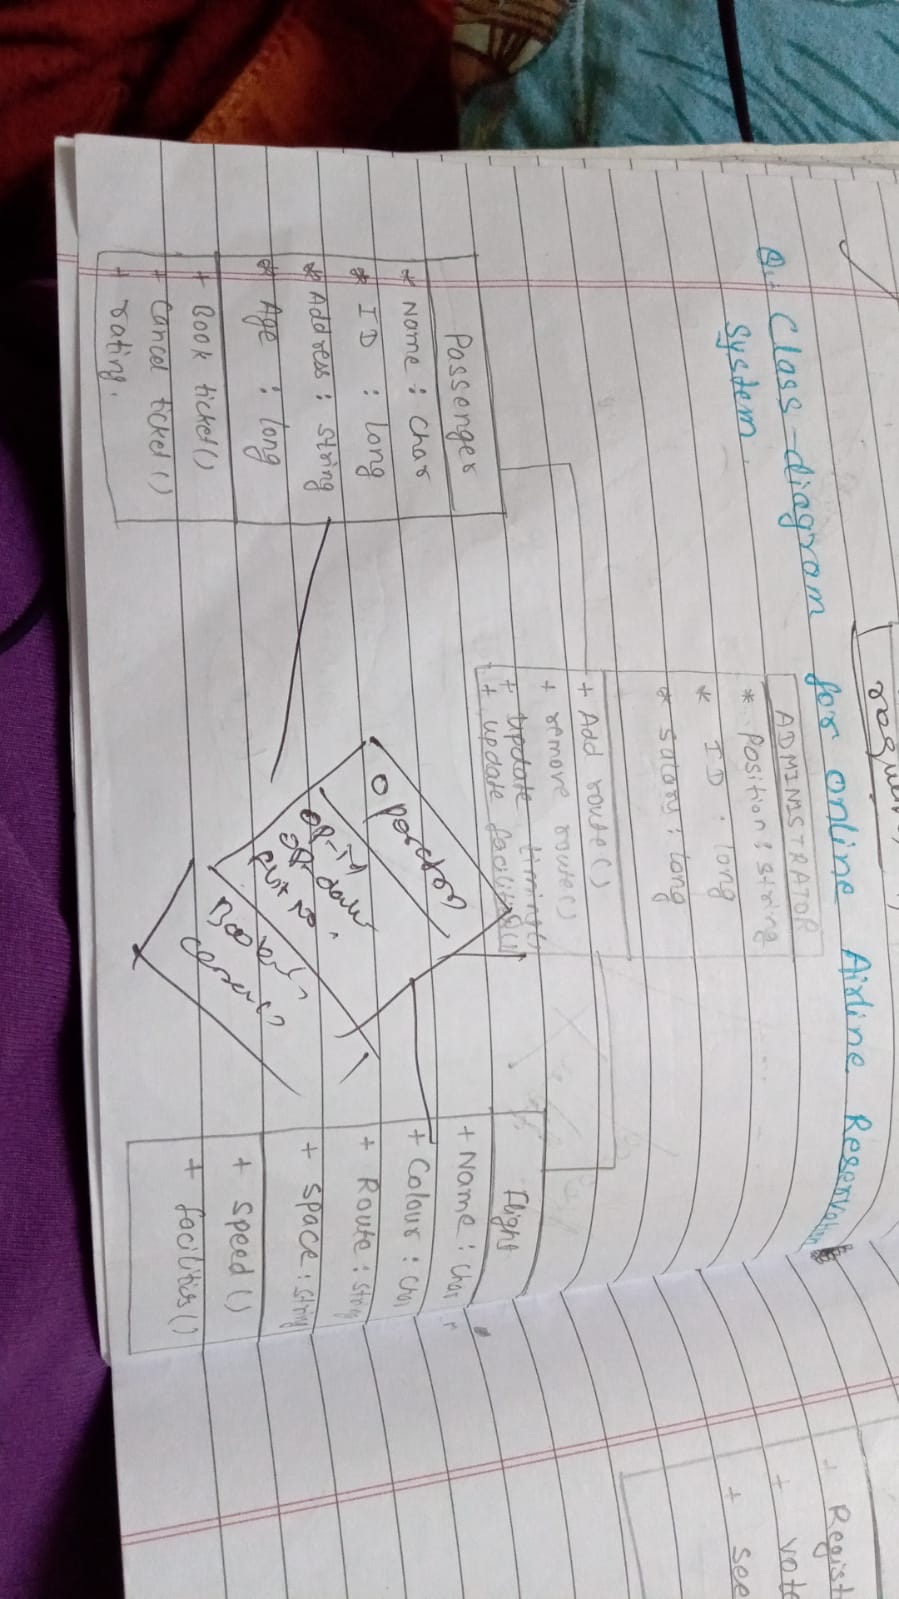 Q:- Class-diagram for online Airline Reservation
System.
ADMINISTRATOR
* Position : String
* ID : long
* salary : long
+ Add route()
+ remove route()
+ Update timing()
+ update facility()
Passenger
* Name : Char
* ID : long
* Address : String
* Age : long
+ Book ticket()
+ Cancel ticket()
+ rating.
Operator
OP-Id
Flight
+ Name : Char
+ Colour : Char
+ Route : String
+ space : string
+ speed()
+ facilities()
+ Regist
+ vote
+ see